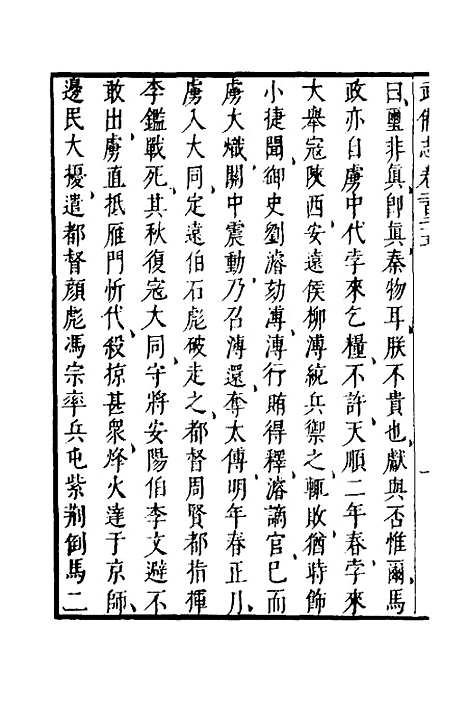 武備志卷二百二十五
曰璽非眞卽眞秦物耳朕不貴也獻與否惟爾馬
政亦自虜中代孛來乞糧不許天順二年春孛來
大舉寇陝西安遠侯柳溥統兵禦之輒敗猶時飾
小捷聞御史劉濬劾溥溥行賄得釋濬謫官已而
虜大熾關中震動乃召溥還奪太傅明年春正月
虜入大同定遠伯石彪破走之都督周賢都指揮
李鑑戰死其秋復寇大同守將安陽伯李文避不
敢出虜直抵雁門忻代殺掠甚衆烽火達于京師
邊民大擾遣都督顔彪馮宗率兵屯紫荆倒馬二